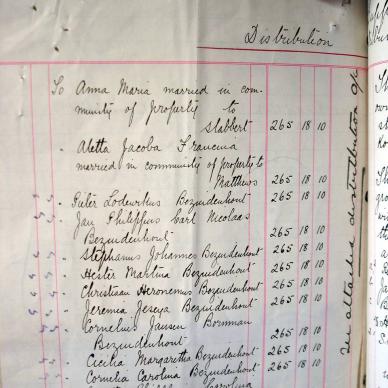 Distribution
To Anna Maria married in com-
munity of property to
Slabbert 265 18 10
" Aletta Jacoba Francina
married in community of property to
Matthews 265 18 10
" Pieter Lodewikus Bezuidenhout 265 18 10
" Jan Philippus Carl Nicolaas
Bezuidenhout 265 18 10
" Stephanus Johannes Bezuidenhout 265 18 10
" Hester Martina Bezuidenhout 265 18 10
" Christiaan Heronemus Bezuidenhout 265 18 10
" Jeremia Jeseya Bezuidenhout 265 18 10
" Cornelius Jansen Bornman
Bezuidenhout 265 18 10
" Cecilia Margaretha Bezuidenhout 265 18 10
" Cornelia Carolina Bezuidenhout 265 18 10
Carolina
See attached distribution a/c